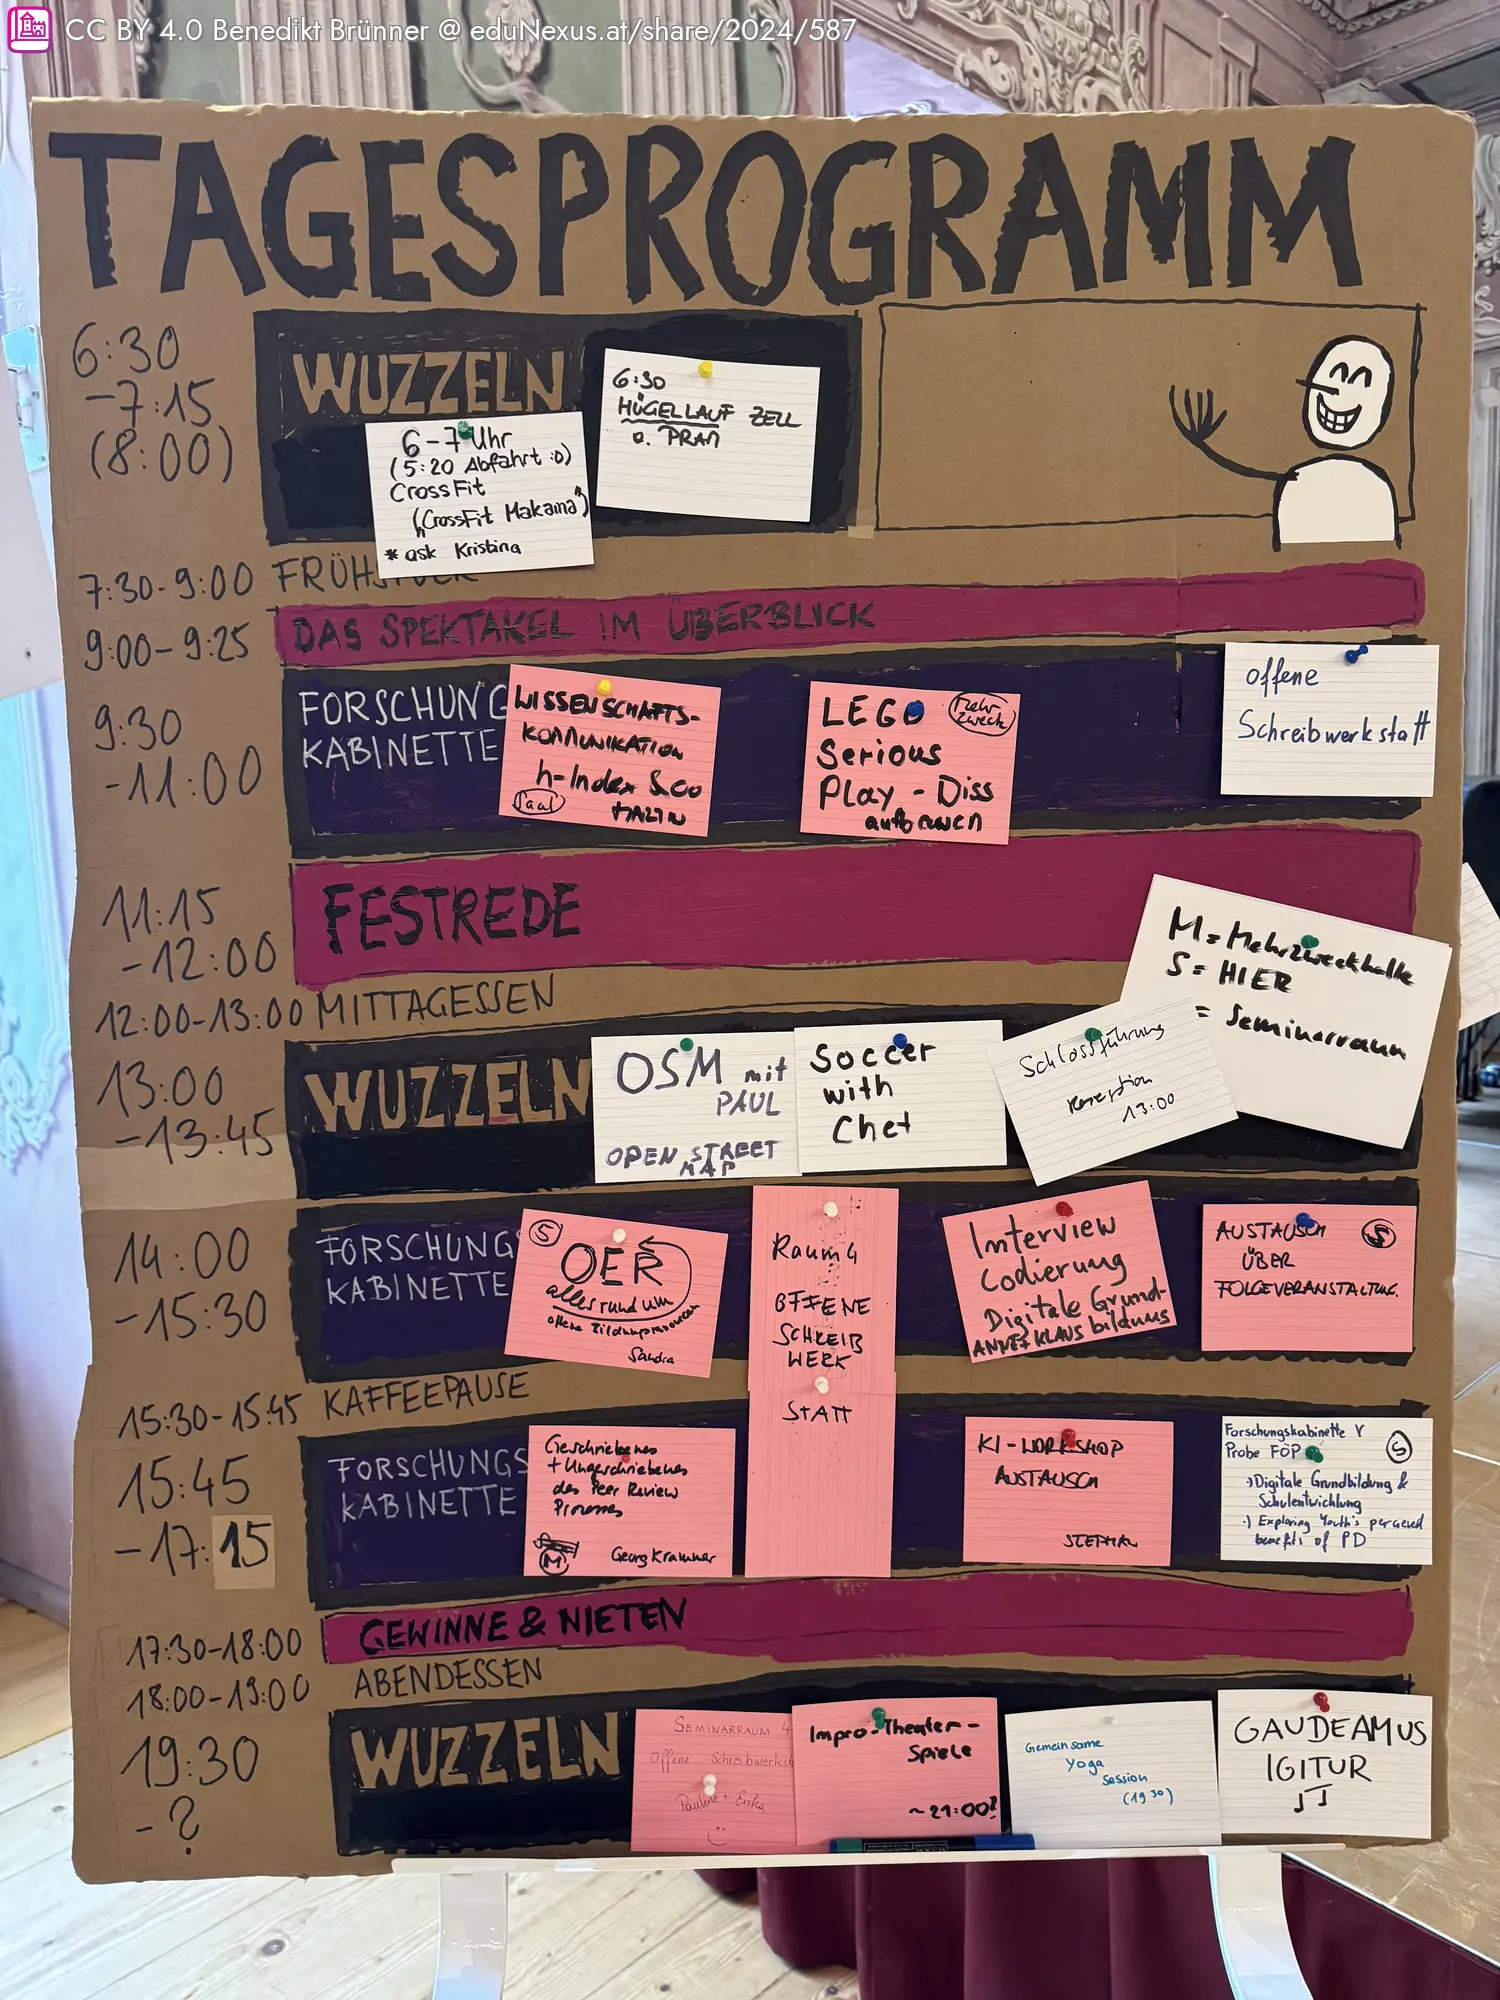 CC BY 4.0 Benedikt Brünner @ eduNexus.at/share/2024/587
TAGESPROGRAMM
6:30
-7:15
(8:00)
WUZZELN
6-7 Uhr
(5:20 Abfahrt :D)
CrossFit
("CrossFit Makama")
* ask Kristina
6:30
HÜGELLAUF ZELL
a. PRAM
7:30-9:00 FRÜHSTÜCK
9:00-9:25 DAS SPEKTAKEL IM ÜBERBLICK
9:30
-11:00
FORSCHUNG
KABINETTE
WISSENSCHAFTS-
KOMMUNIKATION
h-Index & co
Saal
LEGO
Mehr
zweck
Serious
Play - Diss
aufbauen
offene
Schreibwerkstatt
11:15
-12:00
FESTREDE
M = Mehrzweckhalle
S = HIER
= Seminarraum
12:00-13:00 MITTAGESSEN
13:00
-13:45
WUZZELN
OSM mit
PAUL
OPEN STREET
MAP
Soccer
with
Chet
Schlossführung
Rezeption
13:00
14:00
-15:30
FORSCHUNG
KABINETTE
S
OER
alles rund um
offene Bildungsressourcen
Sandra
Raum 4
OFFENE
SCHREIB
WERK
STATT
Interview
Codierung
Digitale Grund-
bildung
AUSTAUSCH
S
ÜBER
FOLGEVERANSTALTUNG.
15:30-15:45 KAFFEEPAUSE
15:45
-17:15
FORSCHUNGS
KABINETTE
Geschriebenes
+ Ungeschriebenes
des Peer Review
Prozesses
M
Georg Krammer
KI-WORKSHOP
AUSTAUSCH
STEPHAN
Forschungskabinette V
Probe FÖP
S
·) Digitale Grundbildung &
Schulentwicklung
·) Exploring Youth's percieved
benefits of PD
17:30-18:00 GEWINNE & NIETEN
18:00-19:00 ABENDESSEN
19:30
- ?
WUZZELN
SEMINARRAUM 4
Offene Schreibwerkst
Pauline + Erika
Impro-Theater-
Spiele
~21:00?
Gemeinsame
Yoga
Session
(19 30)
GAUDEAMUS
IGITUR